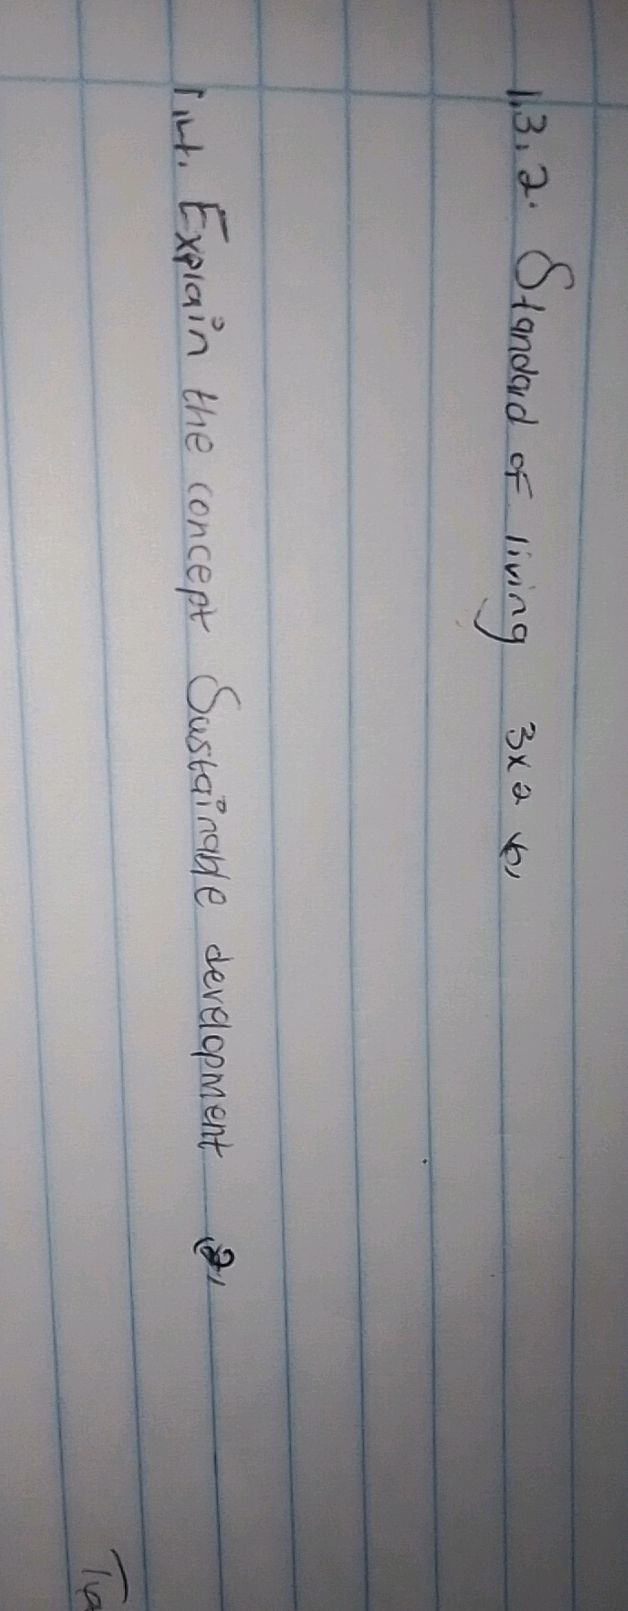 1.3.2. Standard of living 3x2 (6)
1.4. Explain the concept Sustainable development (2)